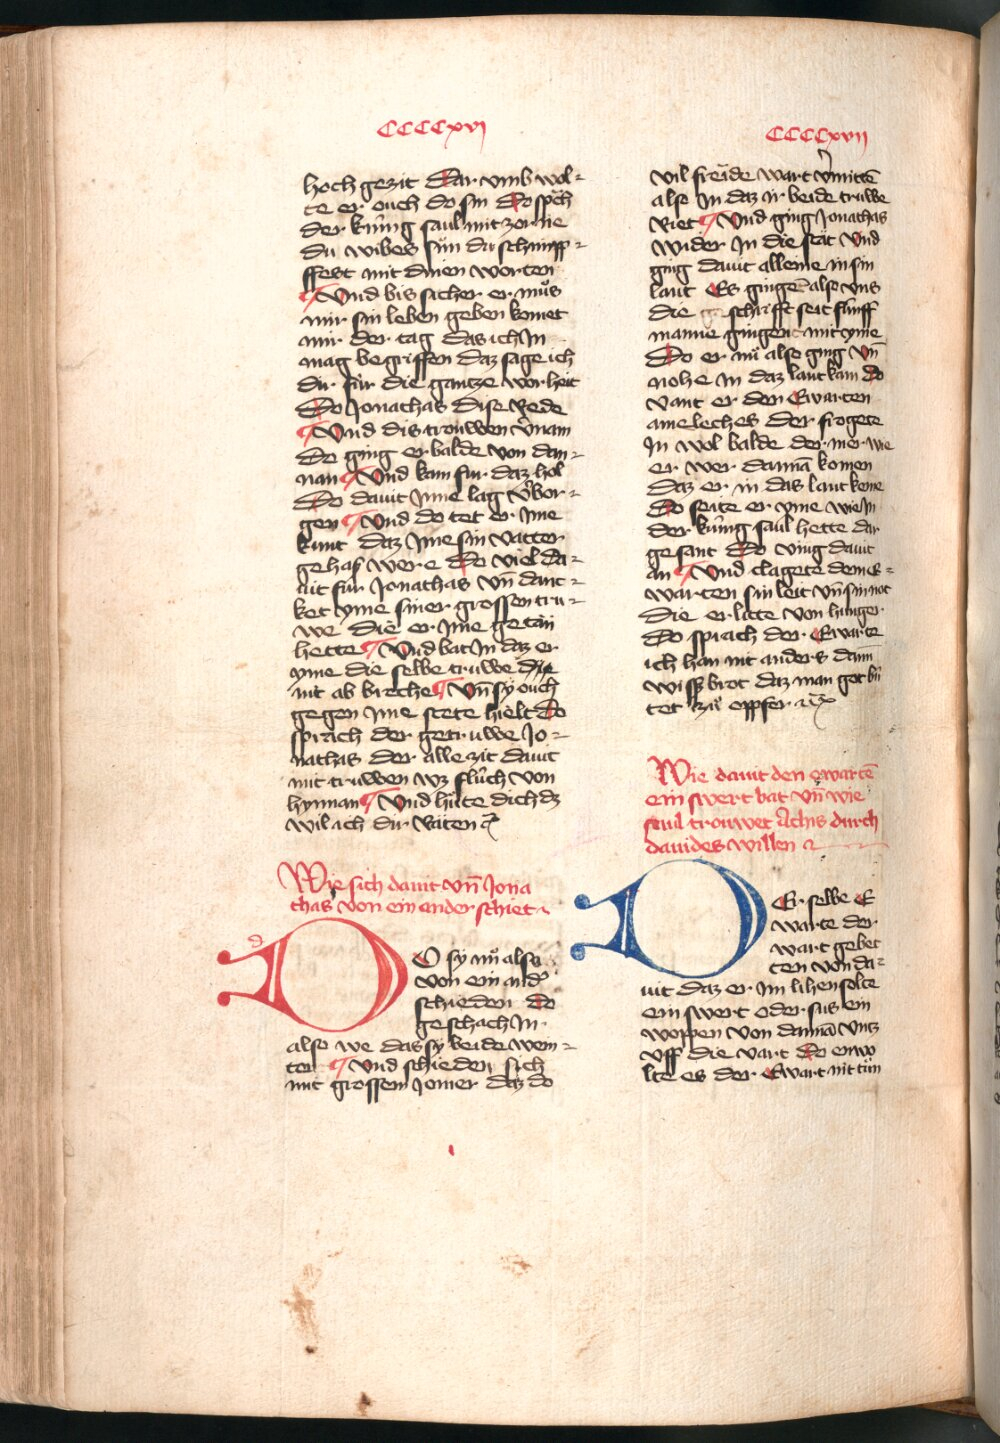 CCCCxvj
hochgezit Dar vmb wol-
te er ouch do sin Do sp̄ch
der kúnig saul mit zorne
du wibes sún du schimpf-
ffest mit dinen worten
Vnd bis sicher er můs
mir sin leben geben komet
mir der tag das ich In
mag begriffen daz sage ich
dir für die gantze worheit
Do Jonathas dise Rede
Vnd dis trouwen v̄nam
Do ging er balde von dan-
nan Vnd kam fur daz hol
Do dauit Inne lag v̄bor-
gen Vnd do tet er Ime
kunt daz Ime sin vatter
gehas were Do viel da-
uit für Jonathas vn̄ danc-
ket yme siner grossen tru-
we die er Ime getān
hette Vnd bat In daz er
yme die selbe truwe
nit ab breche Vn̄ sy ouch
gegen Ime stete hielt Do
sprach der getruwe Jo-
nathas der alle zit dauit
mit truwen wz flúch von
hynnan Vnd hüte dich dz
wil ach dir Raten
Wie sich dauit vn̄ Jona
thas von ein ander schiet
DO sy nů also
von ein and̄
schieden do
geschach In
also we das sy beide wein-
ten Vnd schieden sich
mit grossem Jomer daz do
CCCCxvij
vil freide wart v̄mitten
also In daz ir beide truwe
Riet Vnd ging Jonathas
wider In die stat Vnd
ging dauit alleine in sin
lant Es gingē also vns
die geschrifft seit fúnff
manne gingent mit yme
Do er nů also ging vn̄
nohe In daz lant kam do
vant er den Ewarten
ameleches der frogete
In wol balde der mer wie
er wer dannā komen
daz er in das lant keme
Do seite er yme wie In
der kúnig saul hette dar
gesant Do ving dauit
an Vnd clagete dem e-
warten sin leit vn̄ sin not
die er litte von hunger
Do sprach der Ewarte
ich han nit anders dann
wiss brot daz man got bú
tet zů oppfer
Wie dauit den ewartē
ein swert bat vn̄ wie
saul trouwet Achis durch
dauides willen
DEr selbe E
warte der
wart gebet
ten von da-
uit daz er Im lihen solte
ein swert oder sus ein
woppen von dannā vntz
vff die vart Do enwo
lte es der Ewart nit tůn